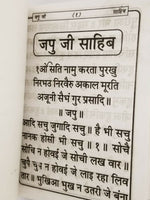 जपु जी साहिब (१) साहिब
जपु जी साहिब
१ओं सति नामु करता पुरखु
निरभउ निरवैरु अकाल मूरति
अजूनी सैभं गुर प्रसादि॥
॥ जपु॥
आदि सचु जुगादि सचु॥ है भी सचु
नानक होसी भी सचु॥ १॥ सोचै
सोचि न होवई जे सोची लख वार॥
चुपै चुप न होवई जे लाइ रहा लिव
तार॥ भुखिआ भुख न उतरी जे बंना